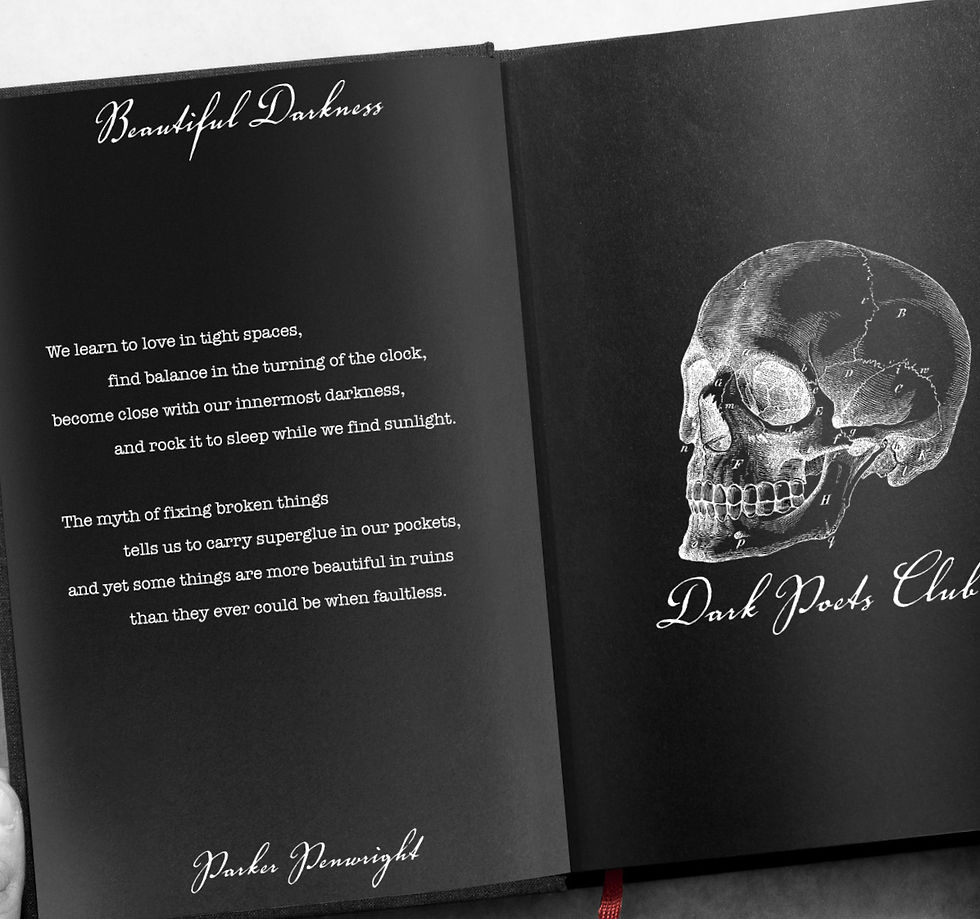 Beautiful Darkness
We learn to love in tight spaces,
find balance in the turning of the clock,
become close with our innermost darkness,
and rock it to sleep while we find sunlight.
The myth of fixing broken things
tells us to carry superglue in our pockets,
and yet some things are more beautiful in ruins
than they ever could be when faultless.
Parker Penwright
Dark Poets Club